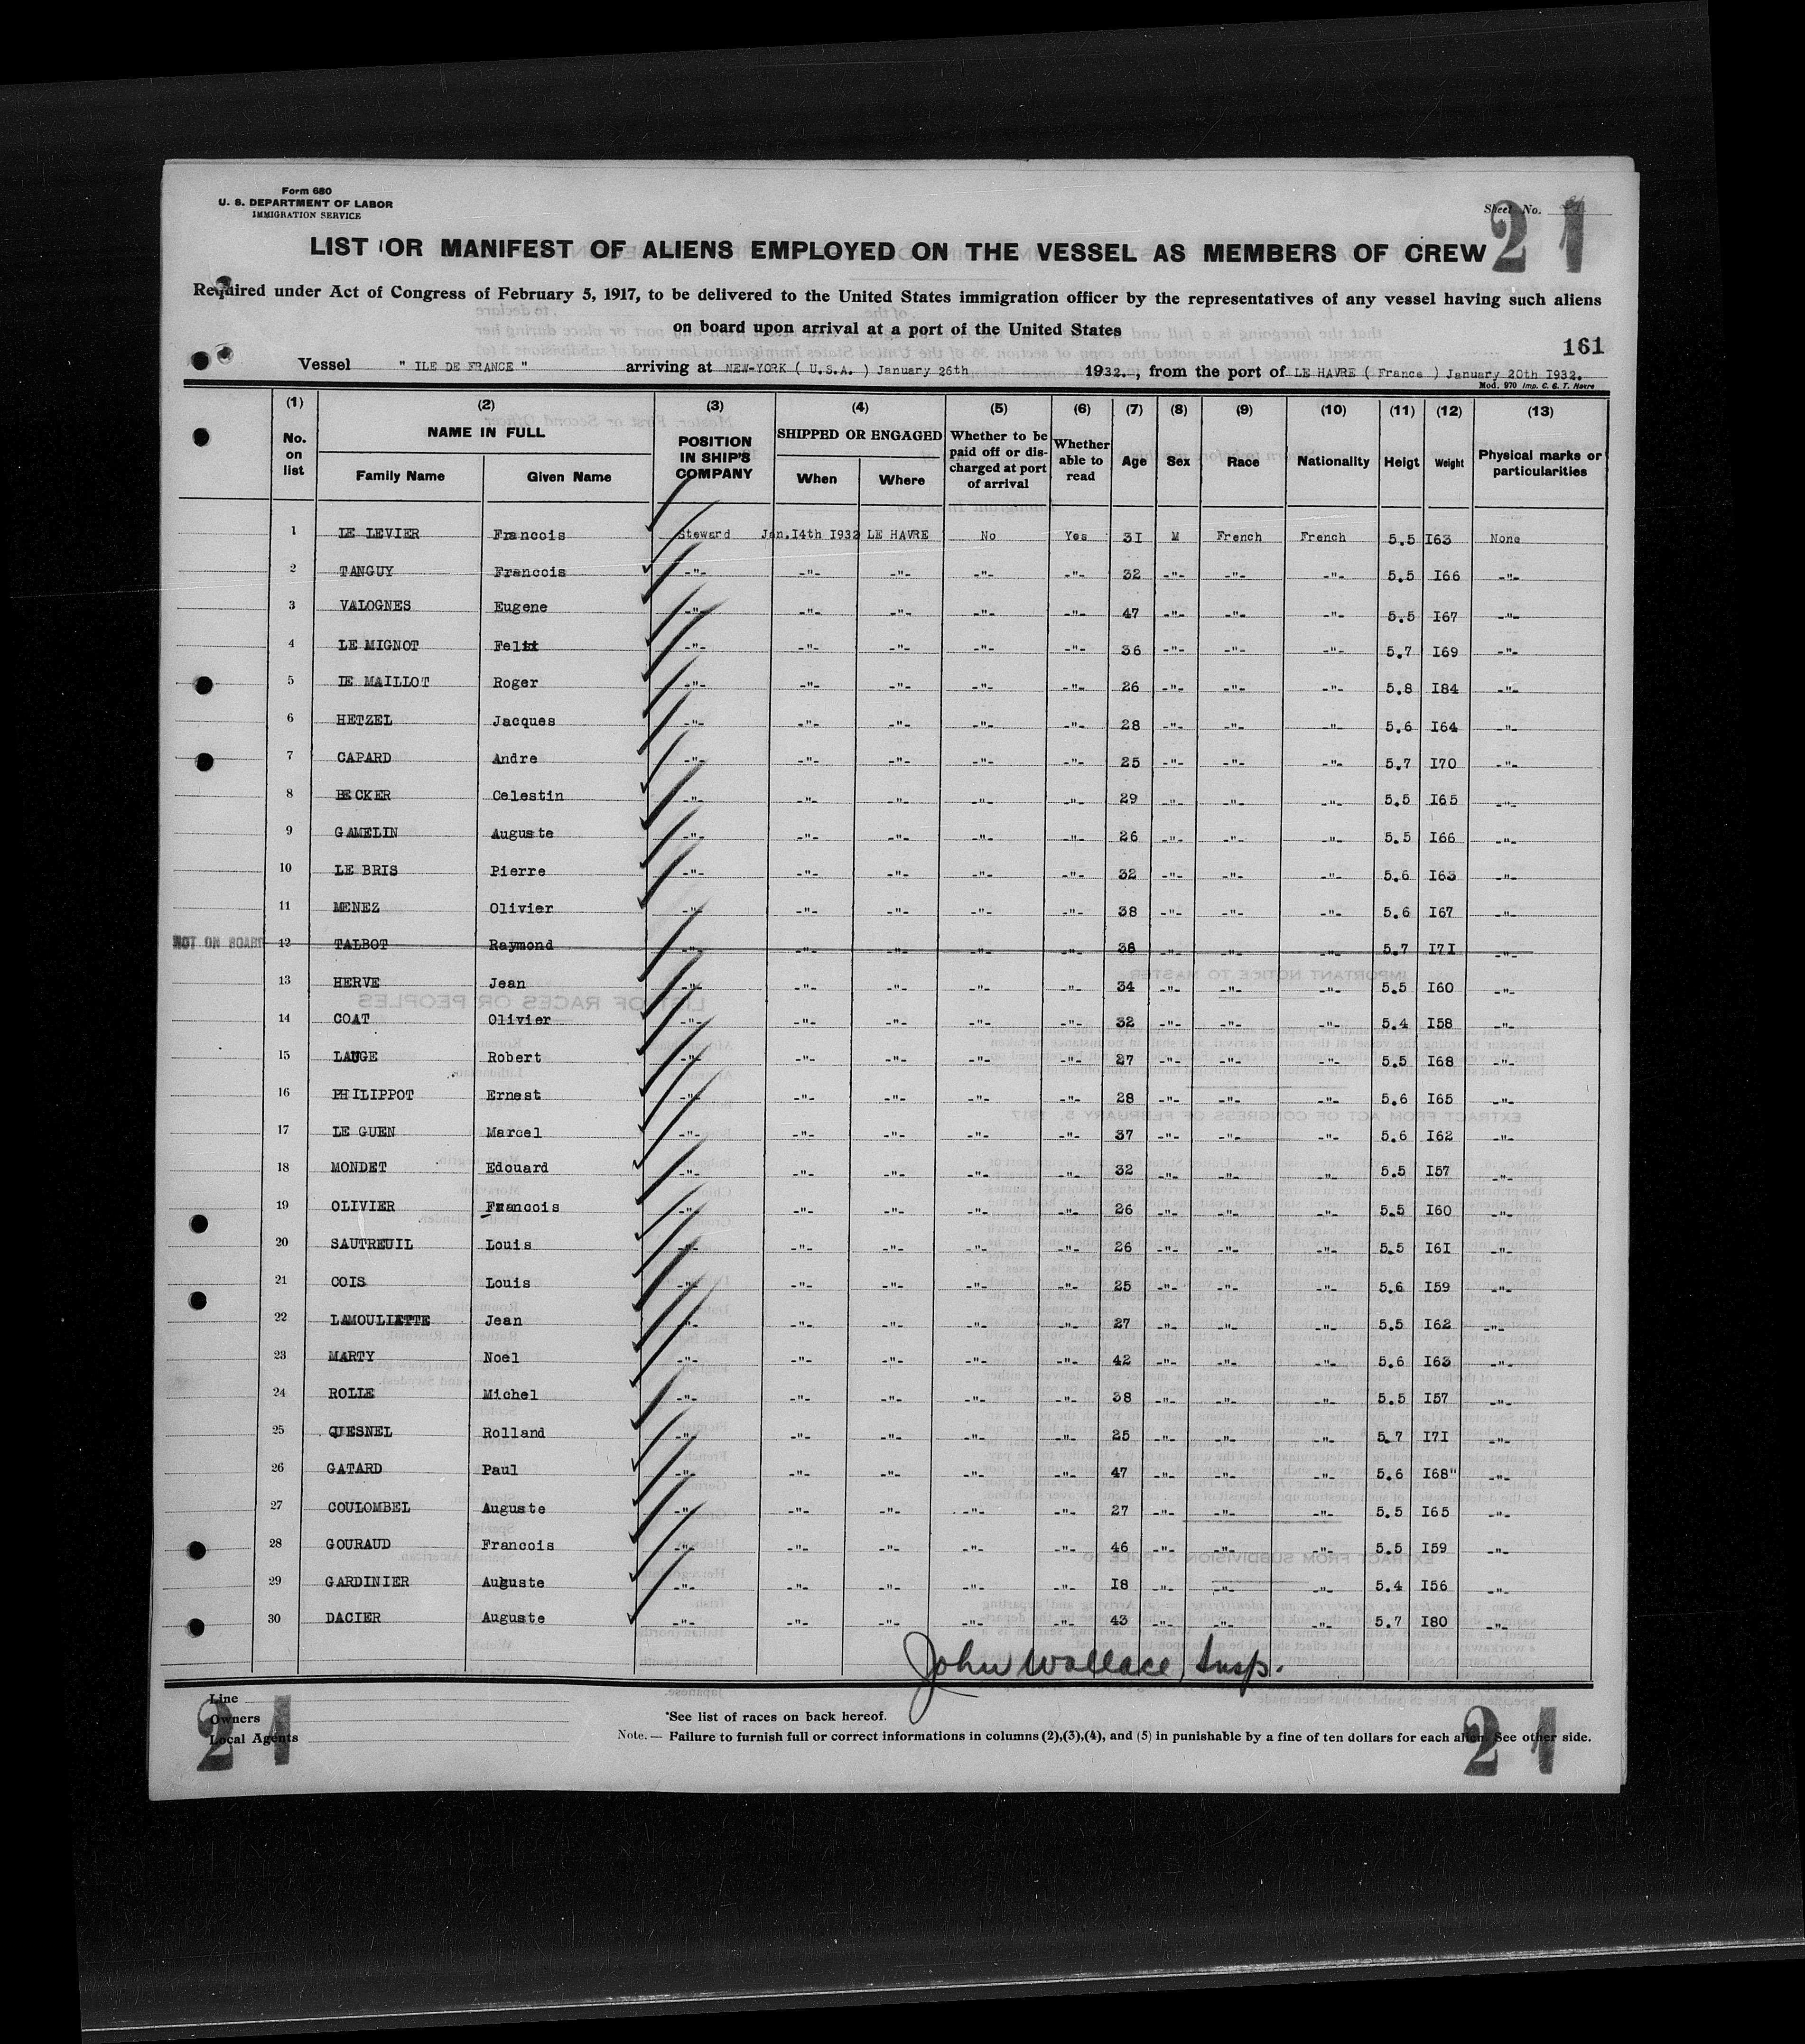 Form 680
U. S. DEPARTMENT OF LABOR
IMMIGRATION SERVICE
Sheet No.
21
LIST OR MANIFEST OF ALIENS EMPLOYED ON THE VESSEL AS MEMBERS OF CREW
Required under Act of Congress of February 5, 1917, to be delivered to the United States immigration officer by the representatives of any vessel having such aliens
on board upon arrival at a port of the United States
161
Vessel " ILE DE FRANCE " arriving at NEW-YORK ( U.S.A. ) January 26th 1932. , from the port of LE HAVRE ( France ) January 20th I932.
Mod. 970 Imp. C. G. T. Havre
(1) (2) (3) (4) (5) (6) (7) (8) (9) (10) (11) (12) (13)
No. on list NAME IN FULL Family Name Given Name POSITION IN SHIP'S COMPANY SHIPPED OR ENGAGED When Where Whether to be paid off or discharged at port of arrival Whether able to read Age Sex Race Nationality Heigt Weight Physical marks or particularities
1 LE LEVIER Francois Steward Jan.I4th I932 LE HAVRE No Yes 3I M French French 5.5 I63 None
2 TANGUY Francois -"- -"- -"- -"- -"- 32 -"- -"- -"- 5.5 I66 -"-
3 VALOGNES Eugene -"- -"- -"- -"- -"- 47 -"- -"- -"- 5.5 I67 -"-
4 LE MIGNOT -"- -"- -"- -"- -"- 36 -"- -"- -"- 5.7 I69 -"-
5 LE MAILLOT Roger -"- -"- -"- -"- -"- 26 -"- -"- -"- 5.8 I84 -"-
6 HETZEL Jacques -"- -"- -"- -"- -"- 28 -"- -"- -"- 5.6 I64 -"-
7 CAPARD Andre -"- -"- -"- -"- -"- 25 -"- -"- -"- 5.7 I70 -"-
8 BECKER Celestin -"- -"- -"- -"- -"- 29 -"- -"- -"- 5.5 I65 -"-
9 GAMELIN Auguste -"- -"- -"- -"- -"- 26 -"- -"- -"- 5.5 I66 -"-
10 LE BRIS Pierre -"- -"- -"- -"- -"- 32 -"- -"- -"- 5.6 I63 -"-
11 MENEZ Olivier -"- -"- -"- -"- -"- 38 -"- -"- -"- 5.6 I67 -"-
NOT ON BOARD 12 TALBOT Raymond -"- -"- -"- -"- -"- 38 -"- -"- -"- 5.7 I7I -"-
13 HERVE Jean -"- -"- -"- -"- -"- 34 -"- -"- -"- 5.5 I60 -"-
14 COAT Olivier -"- -"- -"- -"- -"- 32 -"- -"- -"- 5.4 I58 -"-
15 LAUGE Robert -"- -"- -"- -"- -"- 27 -"- -"- -"- 5.5 I68 -"-
16 PHILIPPOT Ernest -"- -"- -"- -"- -"- 28 -"- -"- -"- 5.6 I65 -"-
17 LE GUEN Marcel -"- -"- -"- -"- -"- 37 -"- -"- -"- 5.6 I62 -"-
18 MONDET Edouard -"- -"- -"- -"- -"- 32 -"- -"- -"- 5.5 I57 -"-
19 OLIVIER Francois -"- -"- -"- -"- -"- 26 -"- -"- -"- 5.5 I60 -"-
20 SAUTREUIL Louis -"- -"- -"- -"- -"- 26 -"- -"- -"- 5.5 I6I -"-
21 COIS Louis -"- -"- -"- -"- -"- 25 -"- -"- -"- 5.6 I59 -"-
22 LAMOULIATTE Jean -"- -"- -"- -"- -"- 27 -"- -"- -"- 5.5 I62 -"-
23 MARTY Noel -"- -"- -"- -"- -"- 42 -"- -"- -"- 5.6 I63 -"-
24 ROLLE Michel -"- -"- -"- -"- -"- 38 -"- -"- -"- 5.5 I57 -"-
25 QUESNEL Rolland -"- -"- -"- -"- -"- 25 -"- -"- -"- 5.7 I7I -"-
26 GATARD Paul -"- -"- -"- -"- -"- 47 -"- -"- -"- 5.6 I68" -"-
27 COULOMBEL Auguste -"- -"- -"- -"- -"- 27 -"- -"- -"- 5.5 I65 -"-
28 GOURAUD Francois -"- -"- -"- -"- -"- 46 -"- -"- -"- 5.5 I59 -"-
29 GARDINIER Auguste -"- -"- -"- -"- -"- I8 -"- -"- -"- 5.4 I56 -"-
30 DACIER Auguste -"- -"- -"- -"- -"- 43 -"- -"- -"- 5.7 I80 -"-
John Wallace, Insp.
Line
Owners
Local Agents
21
*See list of races on back hereof.
Note. — Failure to furnish full or correct informations in columns (2),(3),(4), and (5) in punishable by a fine of ten dollars for each alien. See other side.
21